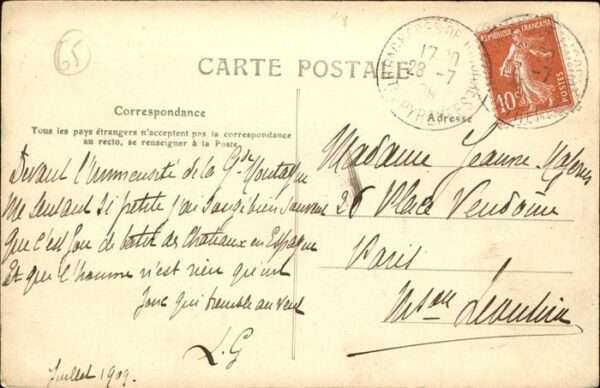 65
CARTE POSTALE
17 20
28 -7
REPUBLIQUE FRANÇAISE
10c
POSTES
Correspondance
Tous les pays étrangers n'acceptent pas la correspondance
au recto, se renseigner à la Poste.
Adresse
Devant l'immensité de la Gde Montagne
Me sentant si petite j'ai songé bien souvent
Que c'est fou de bâtir des Châteaux en Espagne
Et que l'homme n'est rien qu'un
jonc qui tremble au vent
L. G
Juillet 1909.
Madame Jeanne
26 Place Vendôme
Paris